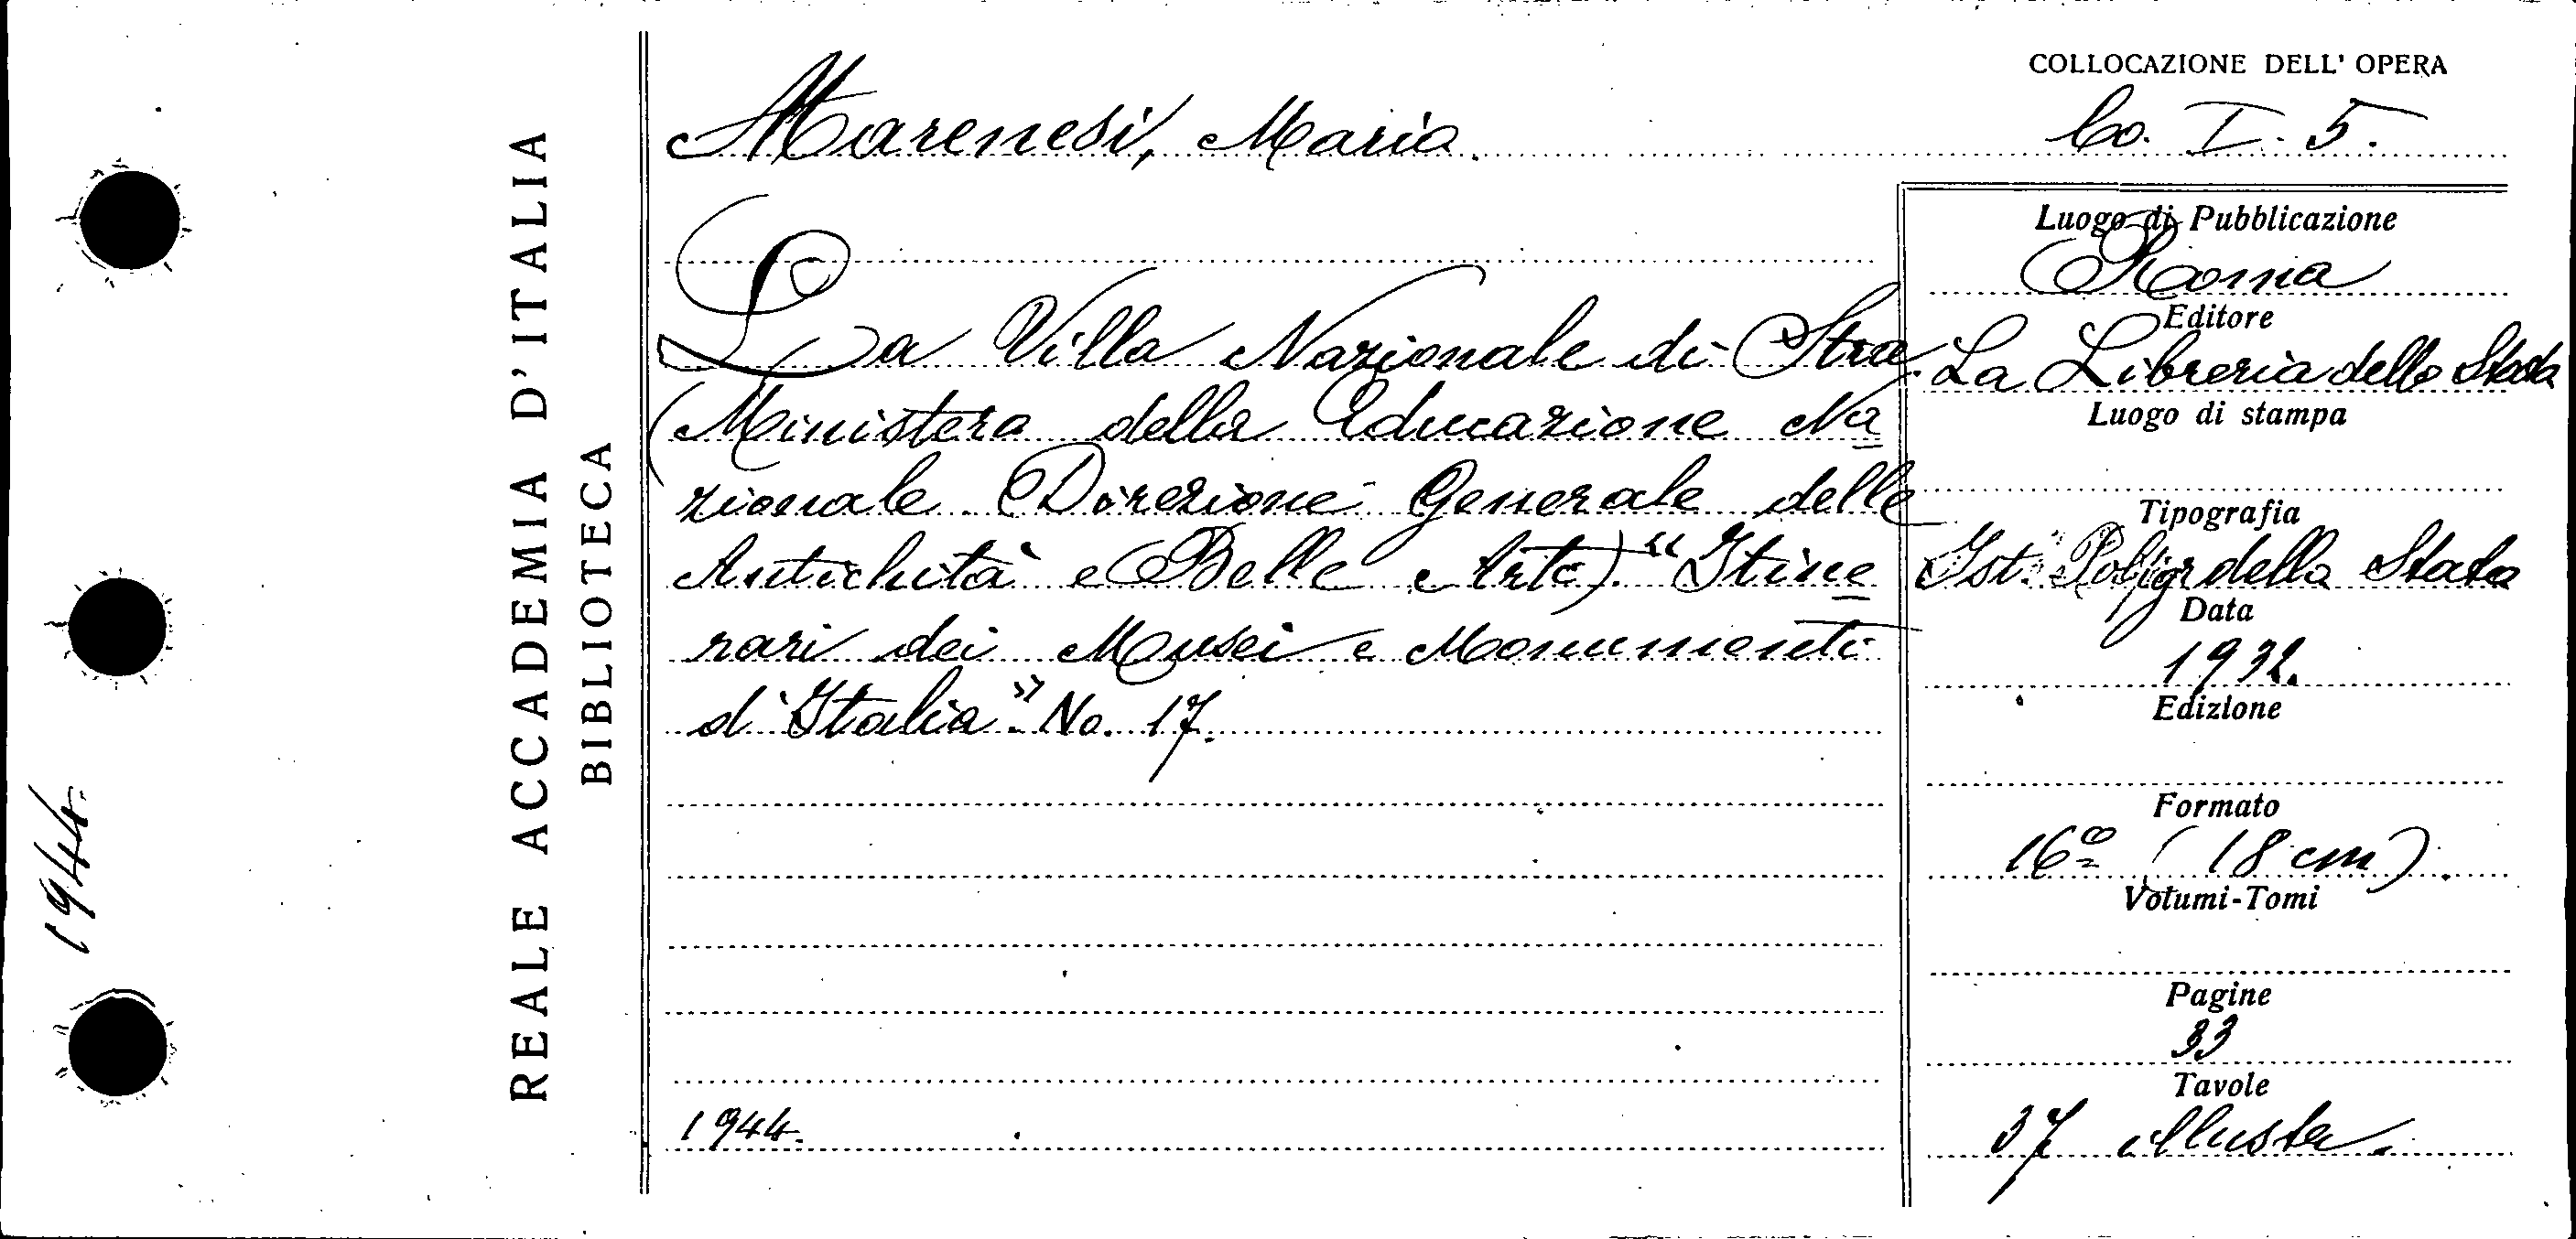 COLLOCAZIONE DELL' OPERA
Marenesi, Maria.
Co. I. 5.
La Villa Nazionale di Stra.
(Ministero della Educazione Na
zionale. Direzione Generale delle
Antichità e Belle Arti). "Itine
rari dei Musei e Monumenti
d'Italia". No. 17.
1944.
Luogo di Pubblicazione
Roma
Editore
La Libreria dello Stato
Luogo di stampa
Tipografia
Ist. Poligr dello Stato
Data
1932.
Edizione
Formato
16º (18 cm).
Volumi-Tomi
Pagine
33
Tavole
37 illustr.
REALE ACCADEMIA D'ITALIA
BIBLIOTECA
1944.